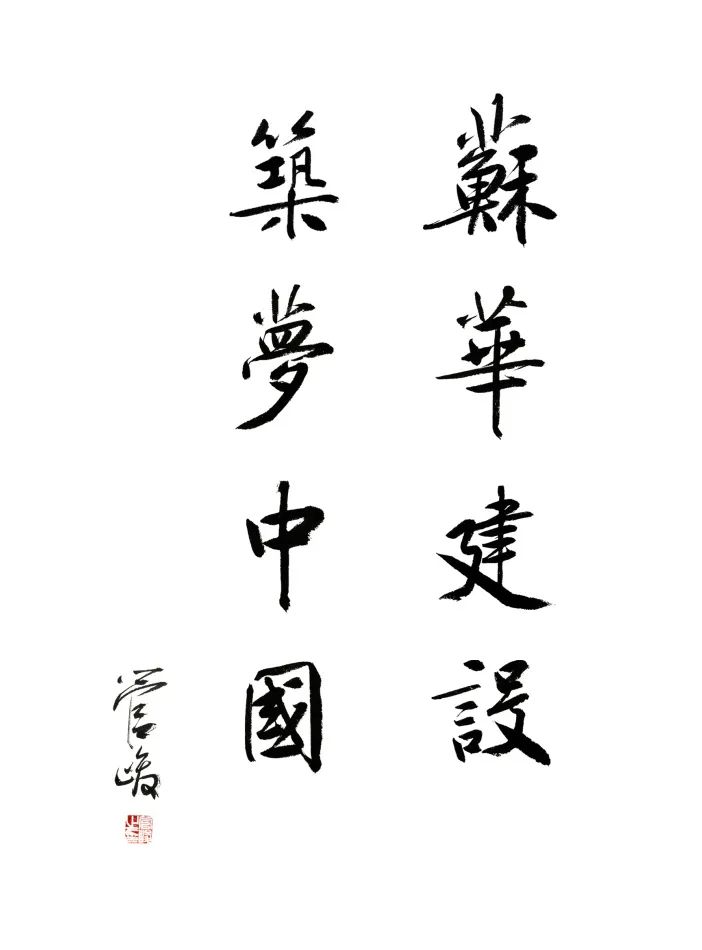 蘇華建設
築夢中國
管峻